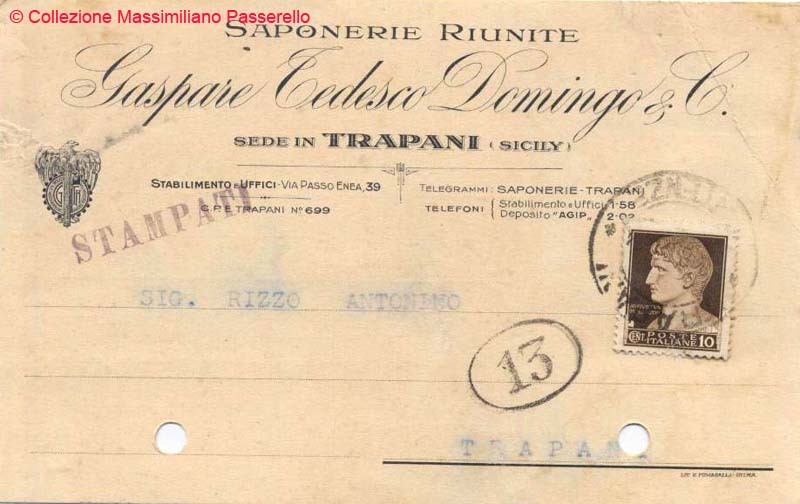 © Collezione Massimiliano Passerello
SAPONERIE RIUNITE
Gaspare Tedesco Domingo & C.
SEDE IN TRAPANI (SICILY)
STABILIMENTO e UFFICI - VIA PASSO ENEA, 39
C.P.E. TRAPANI No 699
TELEGRAMMI: SAPONERIE-TRAPANI
TELEFONI { Stabilimento e Uffici 1-58
Deposito "AGIP" 2-02
STAMPATI
SIG. RIZZO ANTONINO
POSTE
CENT. ITALIANE 10
13
TRAPANI